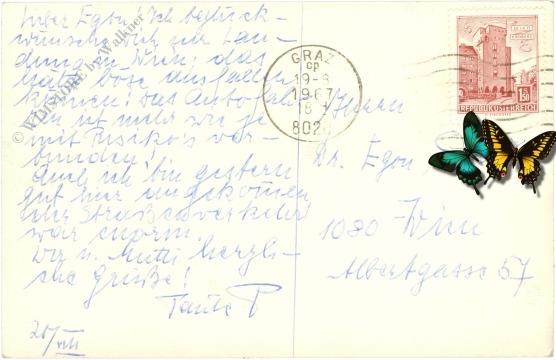 Lieber Egon! Ich beglück-
wünsche Dich zur Lan-
dung in Wien; das
hätte böse ausfallen
können! Das Autofah-
ren ist mehr wie je
mit Risiko's ver-
bunden!
Auch ich bin gestern
gut hier angekommen
der Straßenverkehr
war enorm.
Dir u. Mutti herzli-
che Grüße!
Tante P
20/VIII
© WDI STORE by Walkner
GRAZ
cp
19-8
1967
18
8020
1.50
REPUBLIK ÖSTERREICH
Herrn
Dr. Egon
1080 Wien
Albertgasse 57